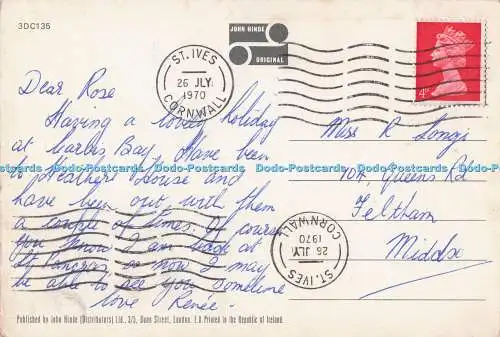 3DC135
JOHN HINDE
ORIGINAL
ST. IVES
26 JLY
1970
CORNWALL
4D
Dear Rose
Having a lovely holiday
at Carbis Bay. Have been
to Heathers House and
have been out with them
a couple of times. Of course
you know I am back at
St Pancras so now I may
be able to see you sometime
love Renée.
Miss R Long
104, Queens Rd
Feltham
Middx
ST. IVES
26 JLY
1970
CORNWALL
Dodo-Postcards Dodo-Postcards Dodo-Postcards Dodo-Postcards Dodo-Postcards
Published by John Hinde (Distributors) Ltd., 3/5, Dean Street, London. Printed in the Republic of Ireland.